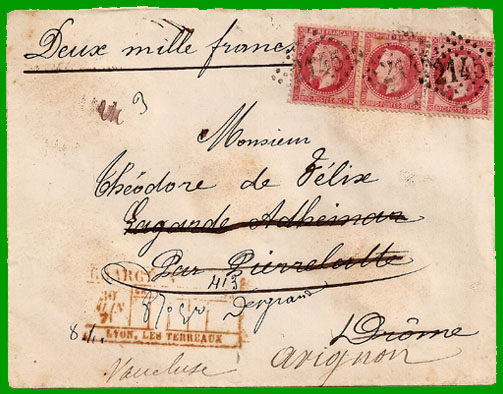 Deux mille francs
2145
2145
2145
3
Monsieur
Théodore de Félix
Lagarde Adheinar
Par Pierrelatte
CHARGÉ
413
LYON, LES TERREAUX
Drôme
avignon
Vaucluse